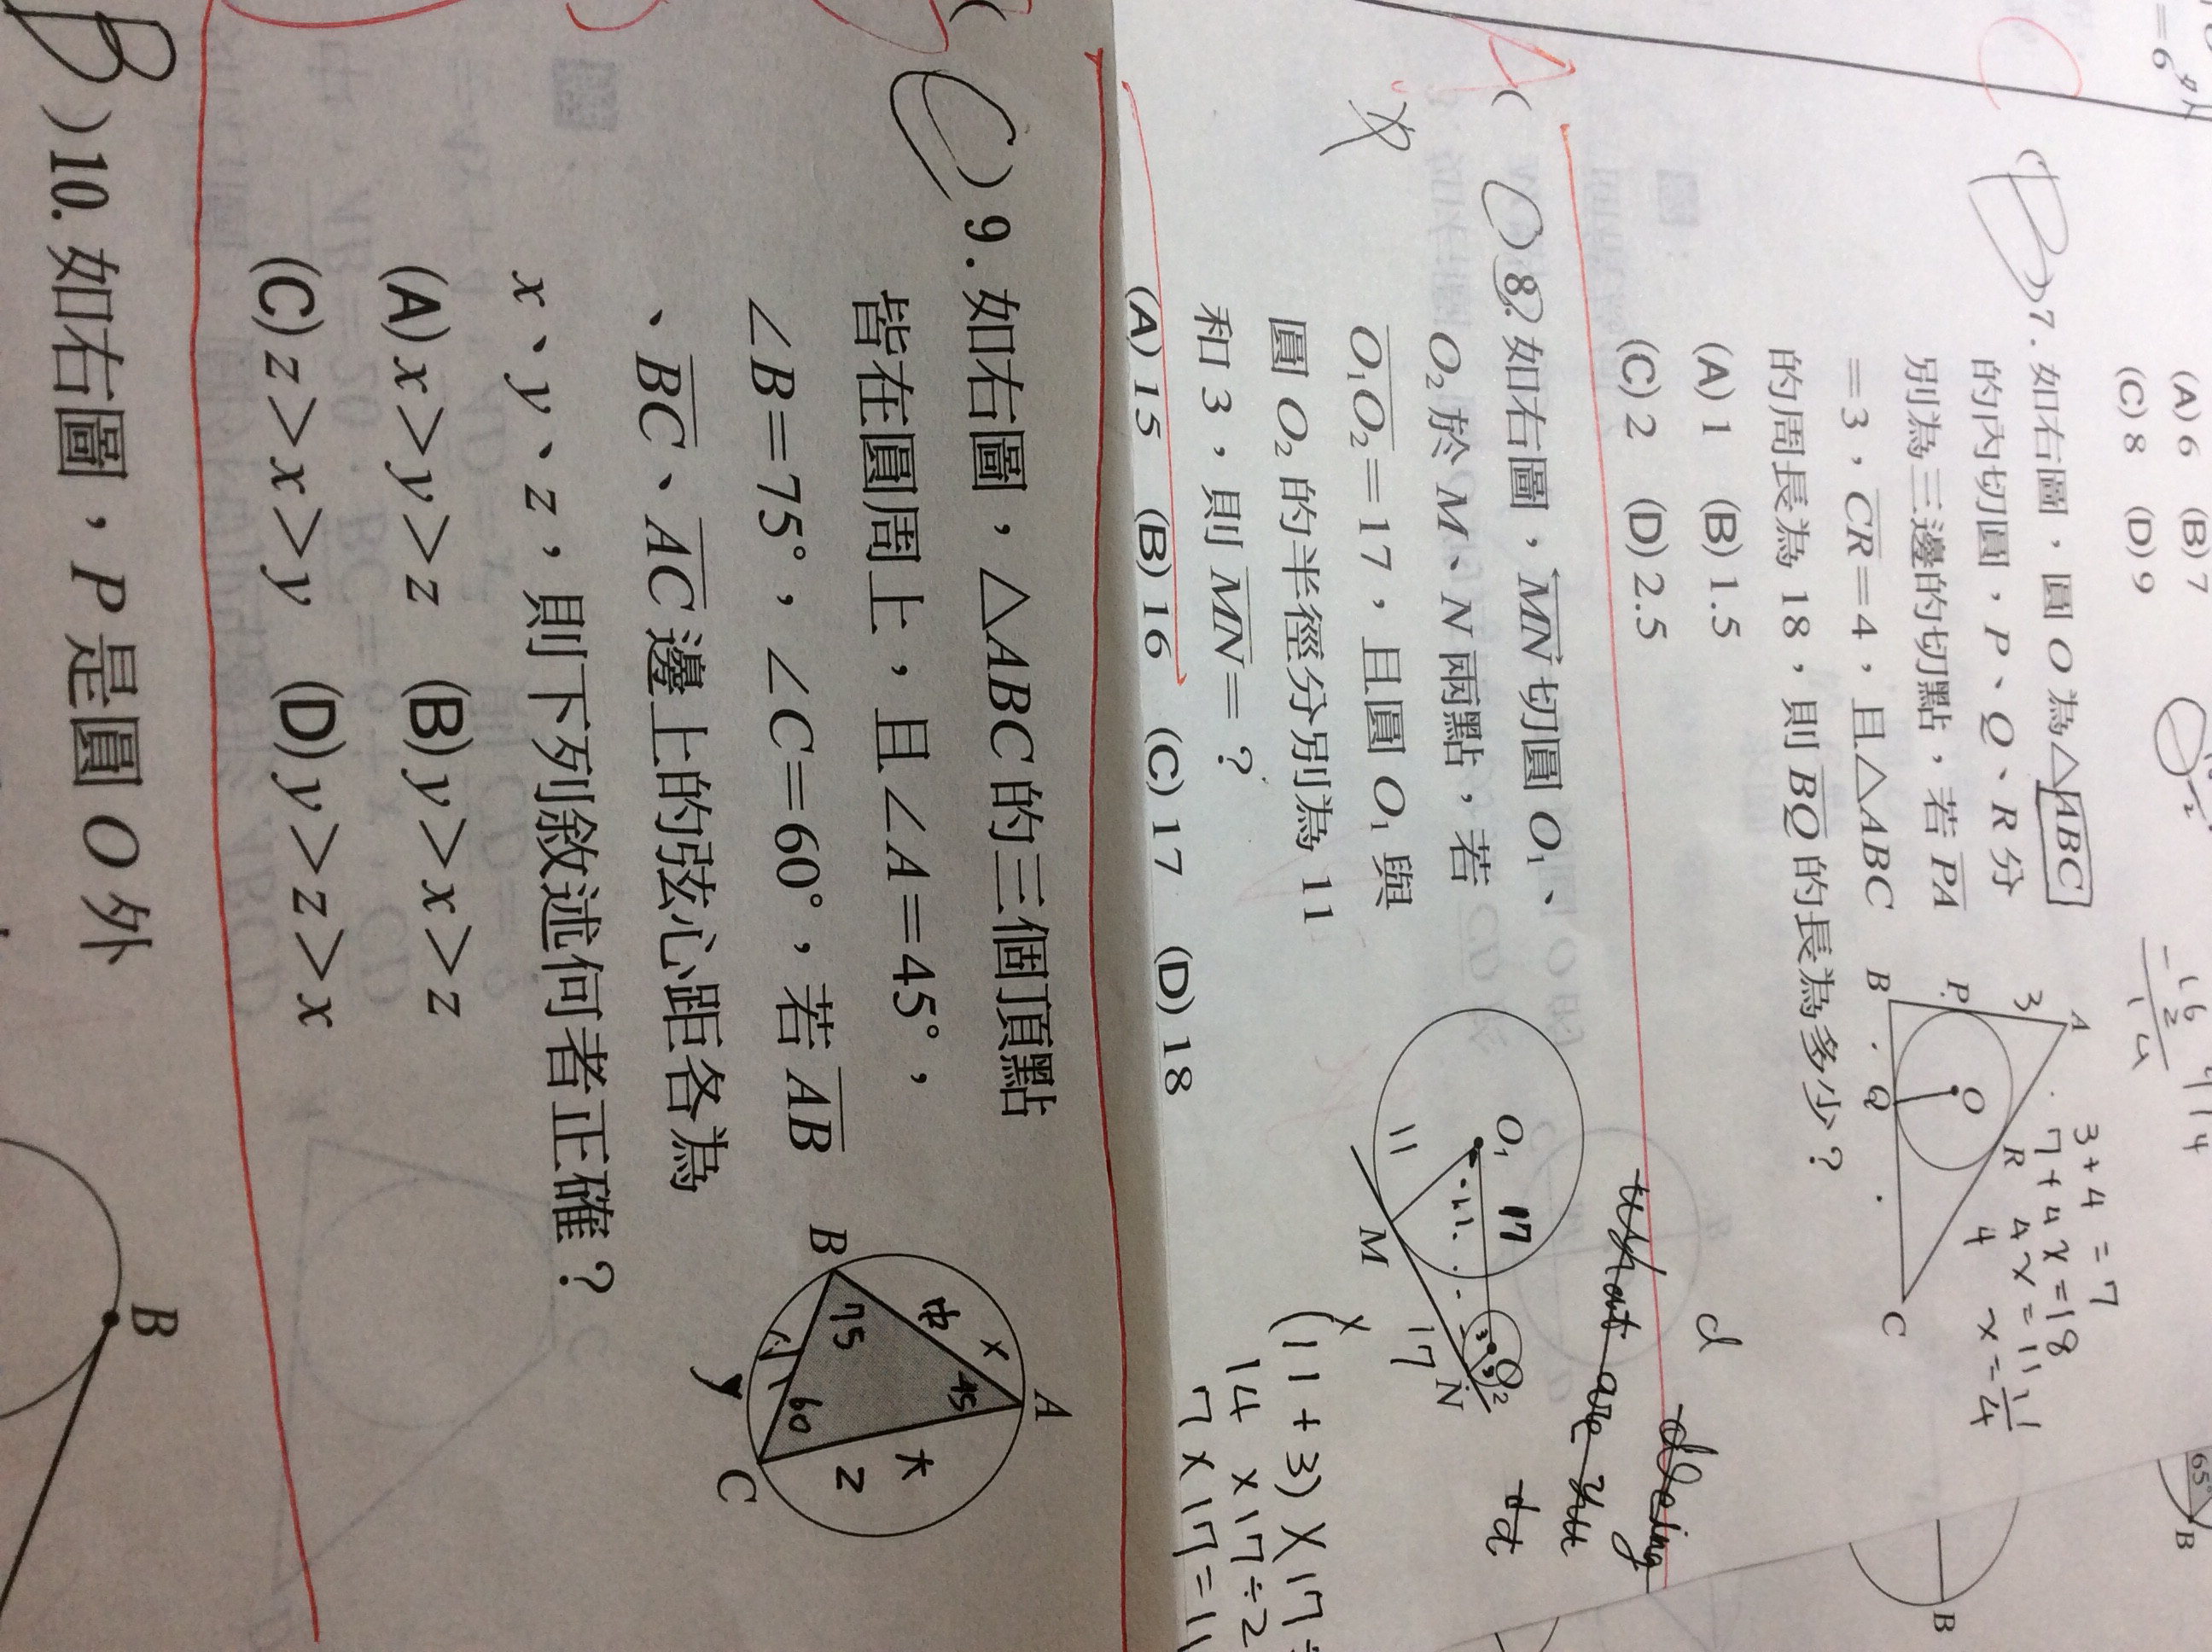 (A) 6 (B) 7
(C) 8 (D) 9
)7. 如右圖，圓 O 為△ABC
的內切圓，P、Q、R 分
別為三邊的切點，若 PA
＝3，CR＝4，且△ABC
的周長為 18，則 BQ 的長為多少？
(A) 1 (B) 1.5
(C) 2 (D) 2.5
A
3
P
B
O
Q
R
4
C
3+4=7
7+4x=18
4x=11
x=11/4
d
what are you doing
( )8. 如右圖，MN 切圓 O₁、
O₂ 於 M、N 兩點，若
O₁O₂＝17，且圓 O₁ 與
圓 O₂ 的半徑分別為 11
和 3，則 MN＝？
(A) 15 (B) 16 (C) 17 (D) 18
O₁ 17
11
M
17
3
O₂
N
(11+3)×17÷
14×17÷2
7×17=11
(C)9. 如右圖，△ABC 的三個頂點
皆在圓周上，且∠A＝45°，
∠B＝75°，∠C＝60°，若 AB
、BC、AC 邊上的弦心距各為
x、y、z，則下列敘述何者正確？
(A) x＞y＞z (B) y＞x＞z
(C) z＞x＞y (D) y＞z＞x
A
45
x
中
B
75
大
z
小
60
y
C
B )10. 如右圖，P 是圓 O 外
B
65°
B
B